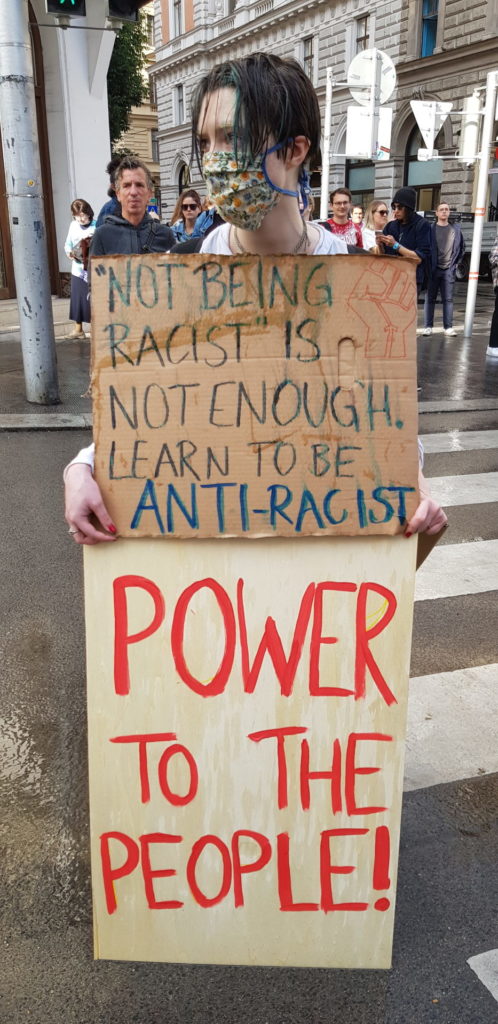 "NOT BEING
RACIST" IS
NOT ENOUGH.
LEARN TO BE
ANTI-RACIST
POWER
TO THE
PEOPLE!